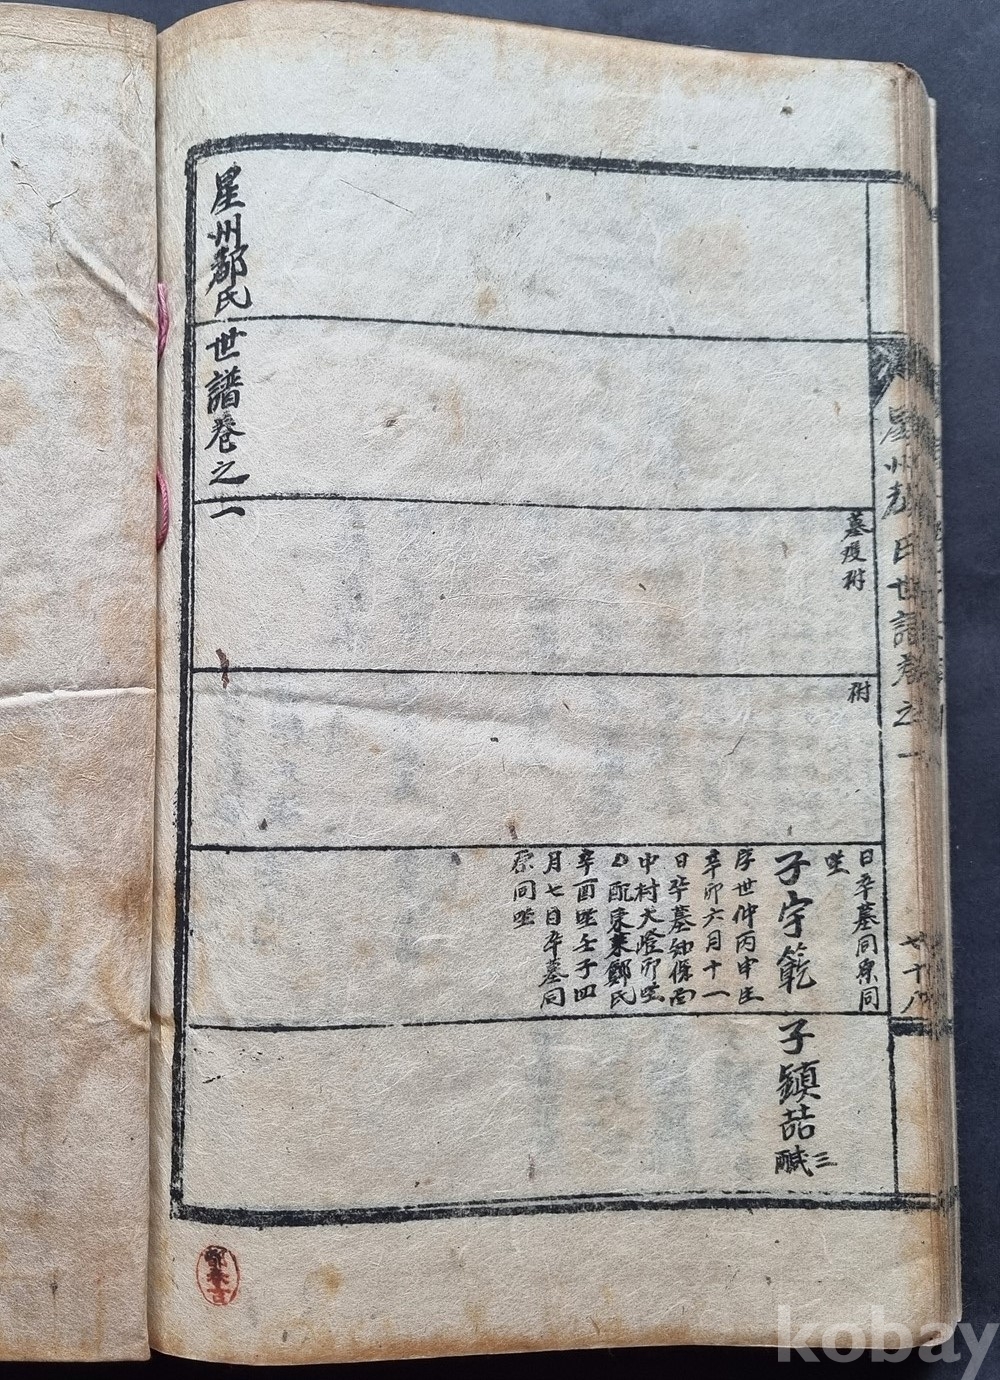 星州都氏世譜卷之一
墓雙祔
祔
日卒墓同原同
坐
子宇範
字世仲丙申生
辛卯六月十一
日卒墓知保面
中村大燈卯坐
配東萊鄭氏
辛酉生壬子四
月七日卒墓同
原同坐
子鎭喆
三
星州都氏世譜卷之一
kobay